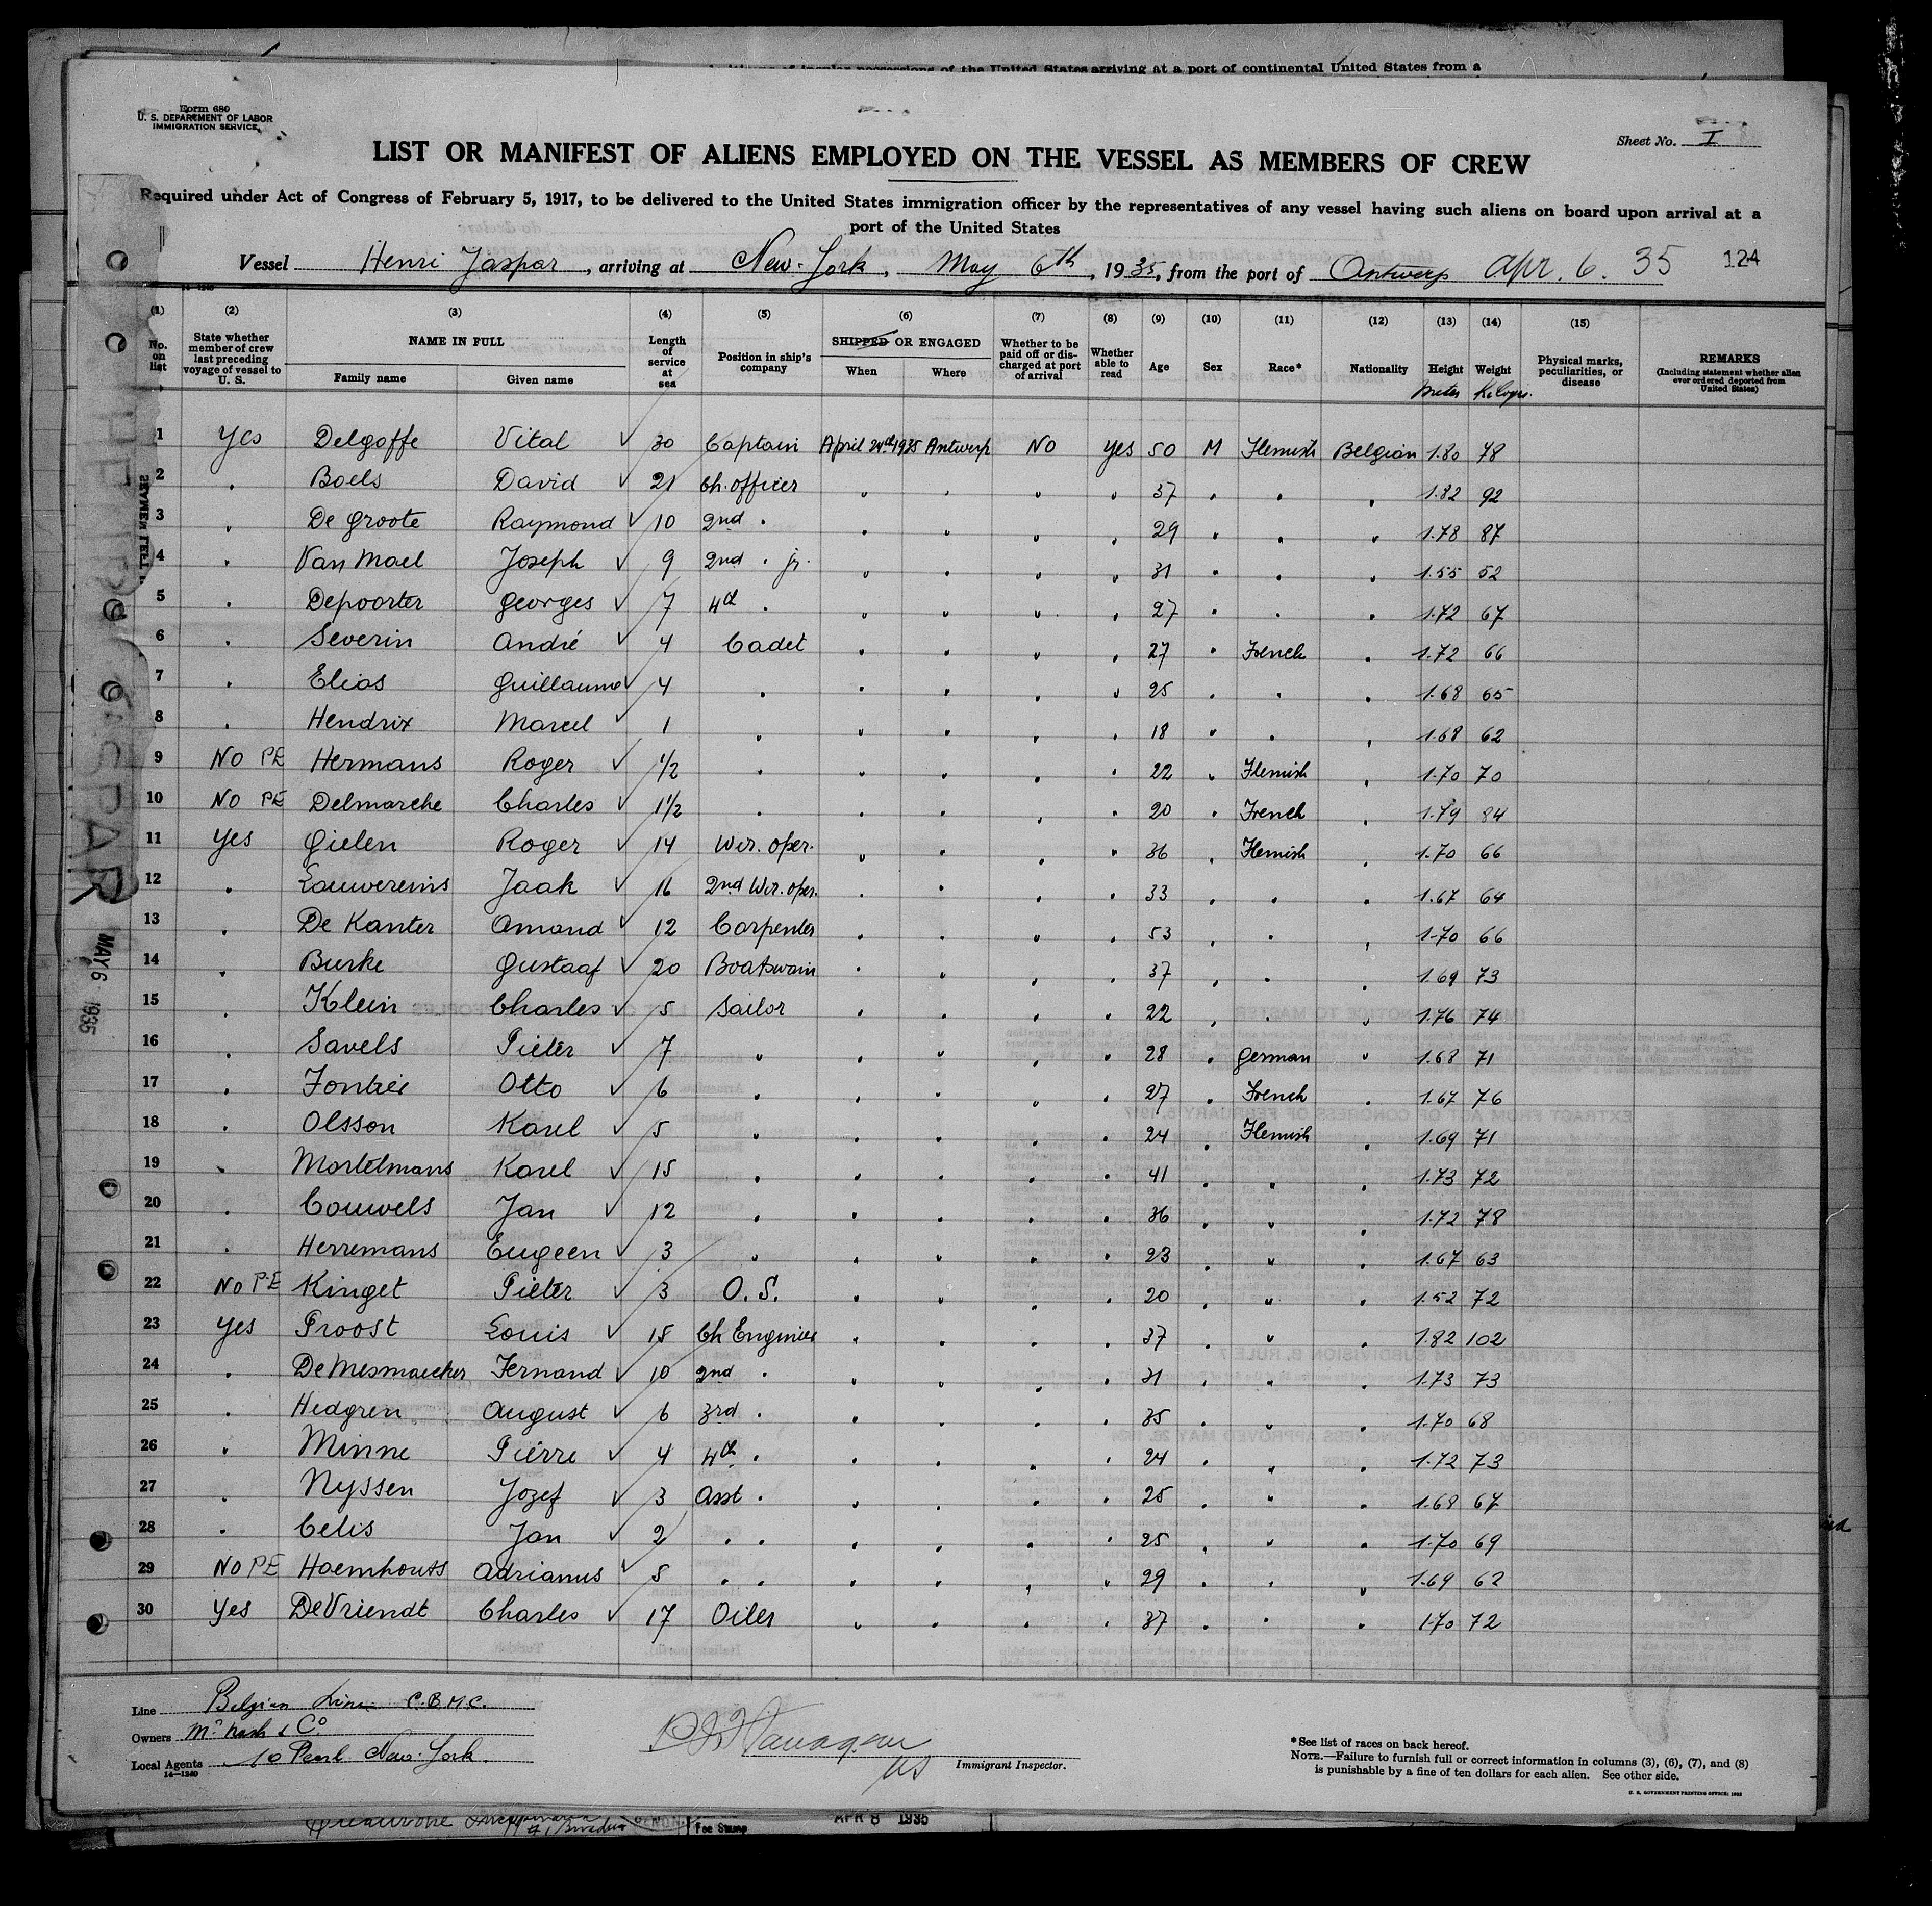 of the United States arriving at a port of continental United States from a
Form 680
U. S. DEPARTMENT OF LABOR
IMMIGRATION SERVICE
Sheet No. I
LIST OR MANIFEST OF ALIENS EMPLOYED ON THE VESSEL AS MEMBERS OF CREW
Required under Act of Congress of February 5, 1917, to be delivered to the United States immigration officer by the representatives of any vessel having such aliens on board upon arrival at a
port of the United States
Vessel Henri Jaspar, arriving at New-York, May 6th, 1935, from the port of Antwerp Apr. 6. 35 124
(1) (2) (3) (4) (5) (6) (7) (8) (9) (10) (11) (12) (13) (14) (15)
No. on list State whether member of crew last preceding voyage of vessel to U. S. NAME IN FULL Family name Given name Length of service at sea Position in ship's company SHIPPED OR ENGAGED When Where Whether to be paid off or discharged at port of arrival Whether able to read Age Sex Race* Nationality Height Meter Weight Kilogr. Physical marks, peculiarities, or disease REMARKS (Including statement whether alien ever ordered deported from United States)
1 Yes Delgoffe Vital ✓ 30 Captain April 24th 1935 Antwerp No Yes 50 M Flemish Belgian 1.80 78
2 " Boels David ✓ 21 Ch. officer " " " " 37 " " " 1.82 92
3 " De Groote Raymond ✓ 10 2nd " " " " " 29 " " " 1.78 87
4 " Van Mael Joseph ✓ 9 2nd " jr. " " " " 31 " " " 1.55 52
5 " Depoorter Georges ✓ 7 4th " " " " " 27 " " " 1.72 67
6 " Severin André ✓ 4 Cadet " " " " 27 " French " 1.72 66
7 " Elias Guillaume ✓ 4 " " " " " 25 " " " 1.68 65
8 " Hendrix Marcel ✓ 1 " " " " " 18 " " " 1.68 62
9 No PE Hermans Roger ✓ 1/2 " " " " " 22 " Flemish " 1.70 70
10 No PE Delmarche Charles ✓ 1 1/2 " " " " " 20 " French " 1.79 84
11 Yes Gielen Roger ✓ 14 Wir. oper. " " " " 36 " Flemish " 1.70 66
12 " Lauwereins Jaak ✓ 16 2nd Wir. oper. " " " " 33 " " " 1.67 64
13 " De Kanter Amand ✓ 12 Carpenter " " " " 53 " " " 1.70 66
14 " Burke Gustaaf ✓ 20 Boatswain " " " " 37 " " " 1.69 73
15 " Klein Charles ✓ 5 Sailor " " " " 22 " " " 1.76 74
16 " Savels Pieter ✓ 7 " " " " " 28 " German " 1.68 71
17 " Otto ✓ 6 " " " " " 27 " French " 1.67 76
18 " Olsson Karel ✓ 5 " " " " " 24 " Flemish " 1.69 71
19 " Mortelmans Karel ✓ 15 " " " " " 41 " " " 1.73 72
20 " Couwels Jan ✓ 12 " " " " " 36 " " " 1.72 78
21 " Herremans Eugeen ✓ 3 " " " " " 23 " " " 1.67 63
22 No PE Kinget Pieter ✓ 3 O. S. " " " " 20 " " " 1.52 72
23 Yes Proost Louis ✓ 15 Ch Engineer " " " " 37 " " " 1.82 102
24 " De Mesmaecker Fernand ✓ 10 2nd " " " " " 31 " " " 1.73 73
25 " Hedgren August ✓ 6 3rd " " " " " 35 " " " 1.70 68
26 " Minne Pierre ✓ 4 4th " " " " " 24 " " " 1.72 73
27 " Nyssen Jozef ✓ 3 Asst " " " " " 25 " " " 1.68 67
28 " Celis Jan ✓ 2 " " " " " " 25 " " " 1.70 69
29 No PE Haemhouts Adrianus ✓ 5 " " " " " " 29 " " " 1.69 62
30 Yes De Vriendt Charles ✓ 17 Oiler " " " " 37 " " " 1.70 72
MAY 6 1935
Line Belgian Line C.B.M.C.
Owners
Local Agents 10 Pearl New-York.
14—1240
Immigrant Inspector.
*See list of races on back hereof.
NOTE.—Failure to furnish full or correct information in columns (3), (6), (7), and (8)
is punishable by a fine of ten dollars for each alien. See other side.
U. S. GOVERNMENT PRINTING OFFICE: 1932
Fee Stamp
APR 8 1935